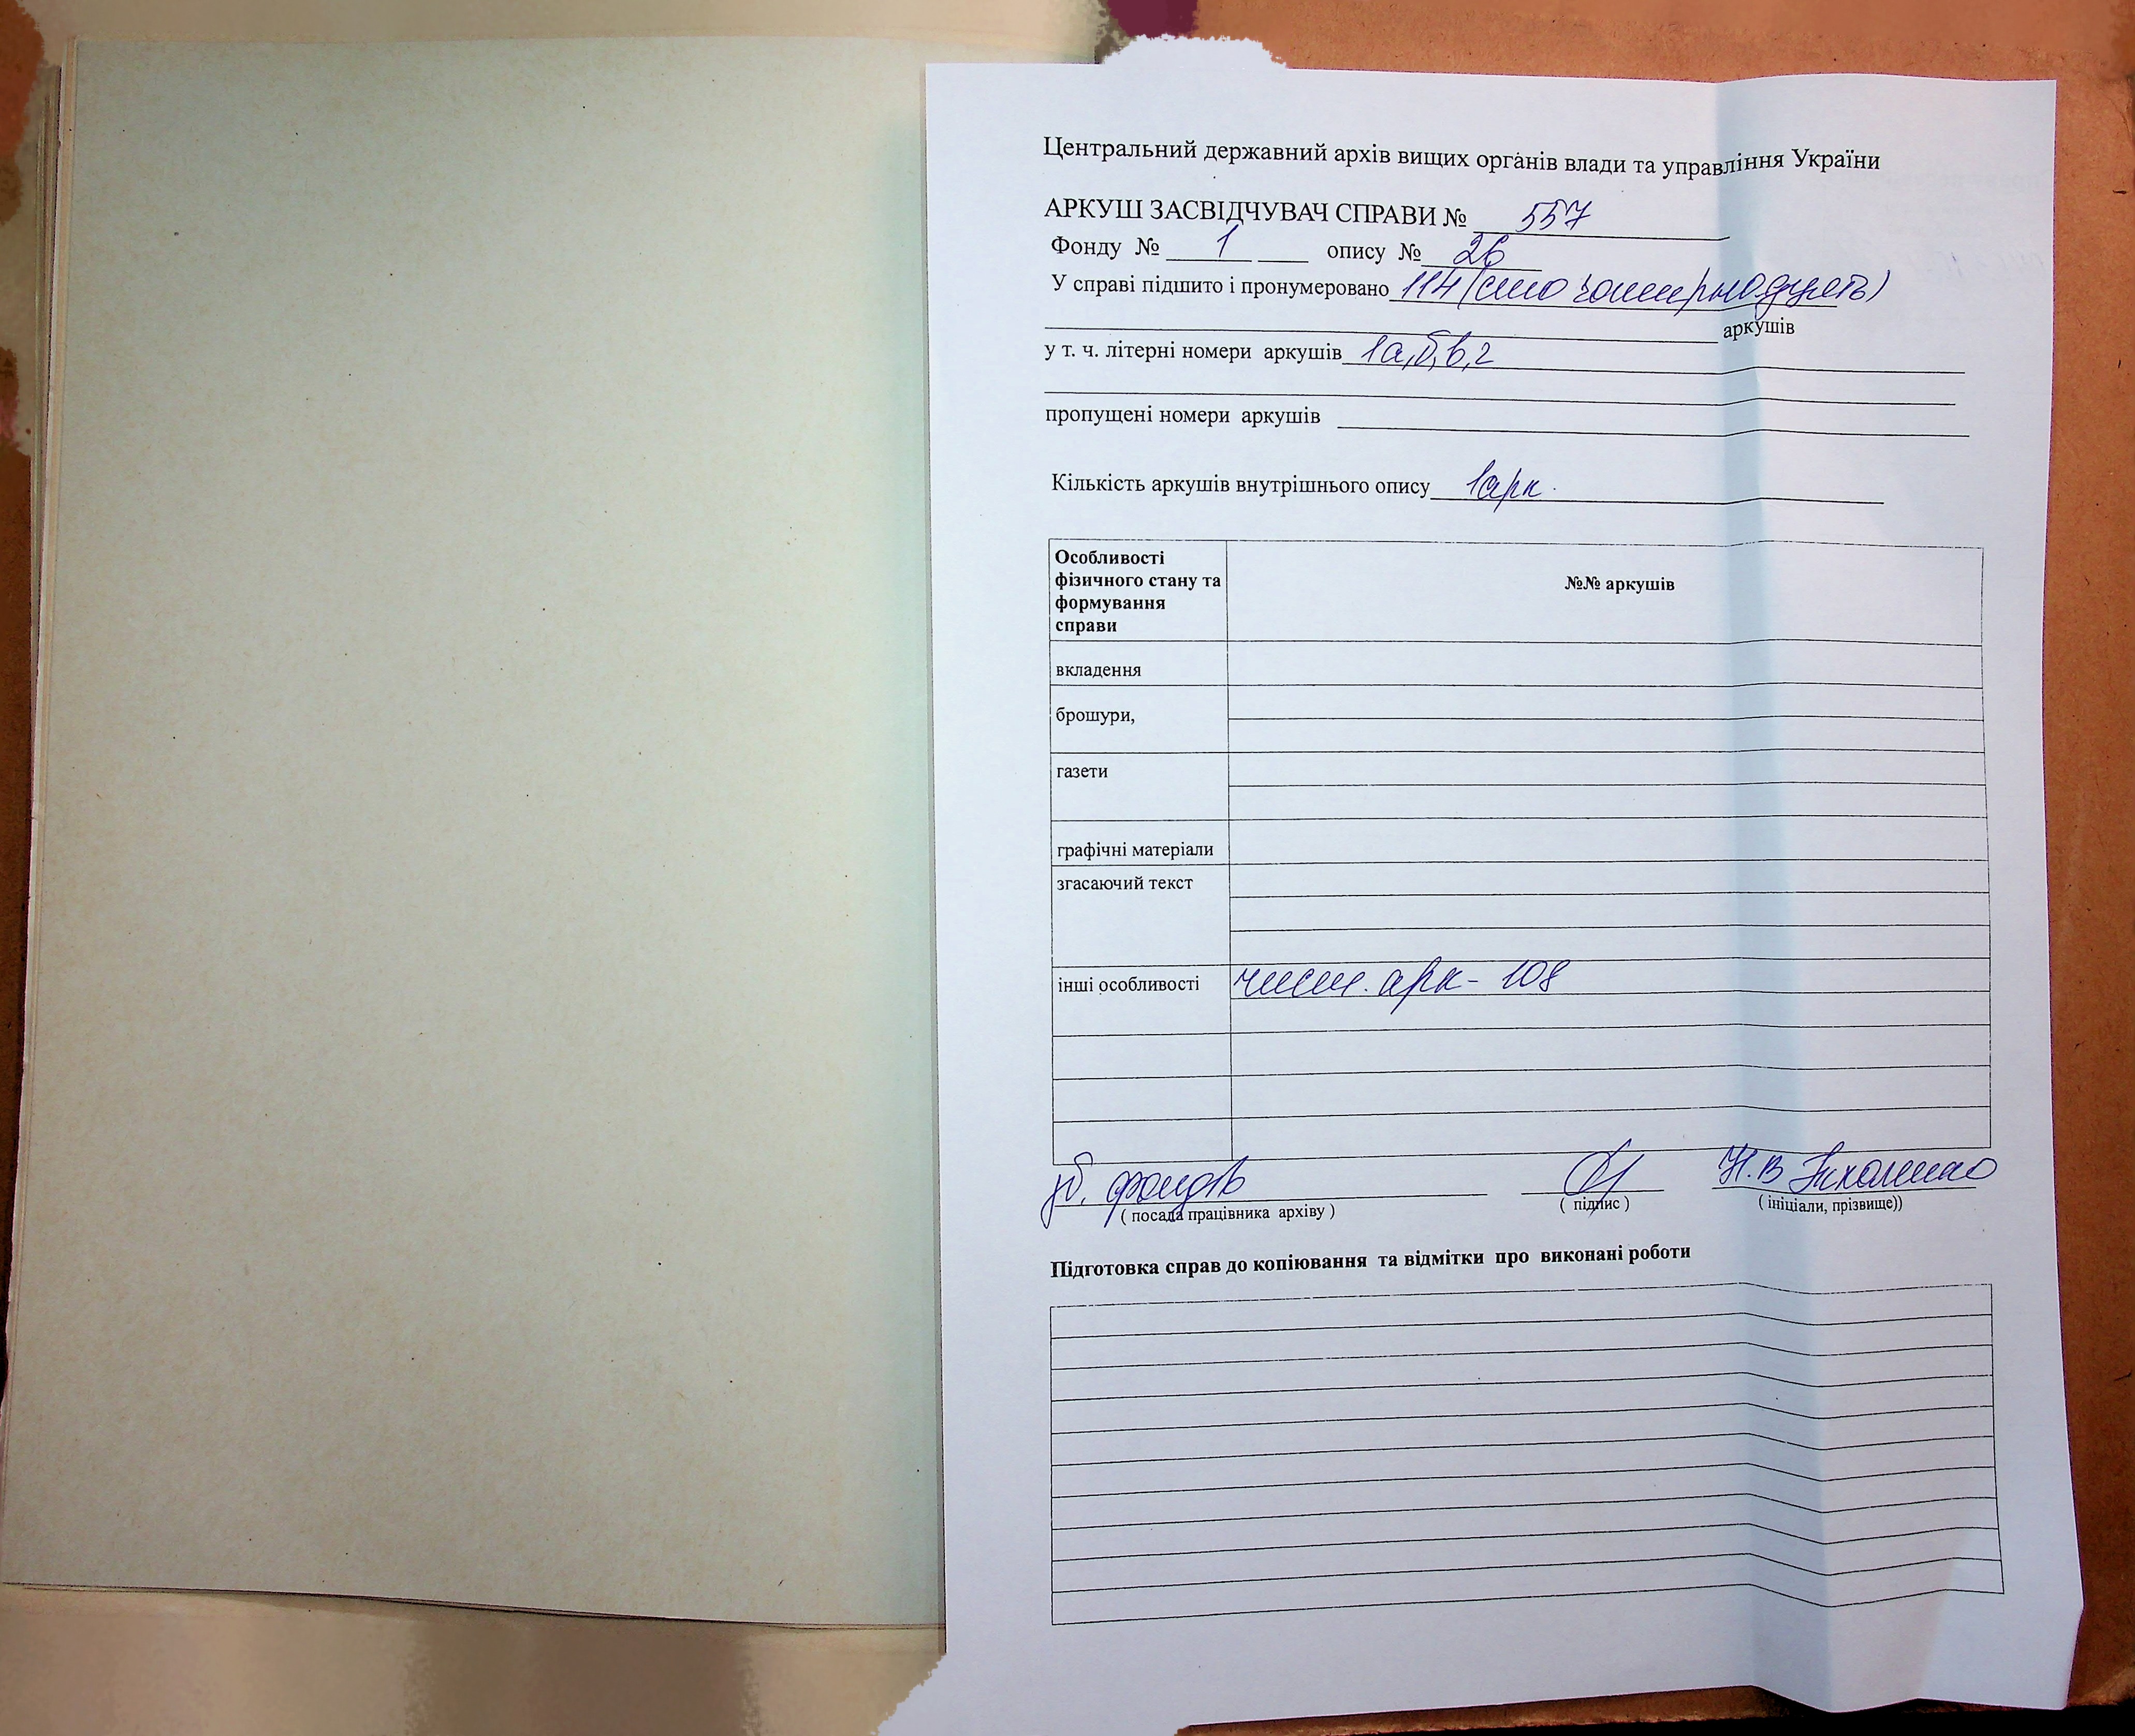 Центральний державний архів вищих органів влади та управління України
АРКУШ ЗАСВІДЧУВАЧ СПРАВИ № 557
Фонду № 1 опису № 26
У справі підшито і пронумеровано 114 (сто чотирнадцять)
аркушів
у т. ч. літерні номери аркушів 1а,б,в,г
пропущені номери аркушів
Кількість аркушів внутрішнього опису 1арк.
Особливості
фізичного стану та
формування
справи
№№ аркушів
вкладення
брошури,
газети
графічні матеріали
згасаючий текст
інші особливості чист. арк - 108
зб. фондів Н.В
( посада працівника архіву ) ( підпис ) ( ініціали, прізвище))
Підготовка справ до копіювання та відмітки про виконані роботи